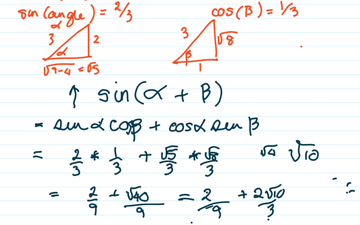 sin(angle) = 2/3
cos(β) = 1/3
α
3 2
α
√9-4 = √5
3 √8
β
1
↑ sin(α + β)
= sin α cosβ + cosα sin β
= 2/3 * 1/3 + √5/3 * √8/3 √4 √10
= 2/9 + √40/9 = 2/9 + 2√10/3